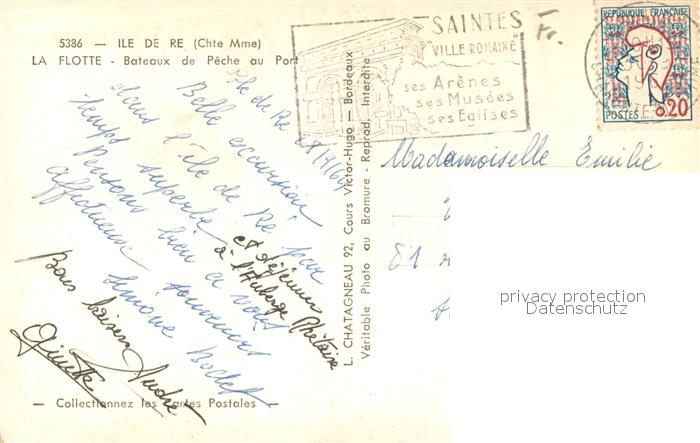 5386 — ILE DE RE (Chte Mme)
LA FLOTTE - Bateaux de Pêche au Port
Ile de Ré
Belle excursion
dans l'île de Ré par
temps superbe
Pensons bien à vous
affectueux souvenirs
Simone
et déjeuner
à l'Auberge
Bons baisers André
Ginette
— Collectionnez les Cartes Postales —
L. CHATAGNEAU 92, Cours Victor-Hugo — Bordeaux
Véritable Photo au Bromure - Reprod. Interdite
SAINTES
"VILLE ROMAINE"
ses Arènes
ses Musées
ses Eglises
Fr.
REPUBLIQUE FRANÇAISE
POSTES
0,20
Mademoiselle Emilie
81
privacy protection
Datenschutz